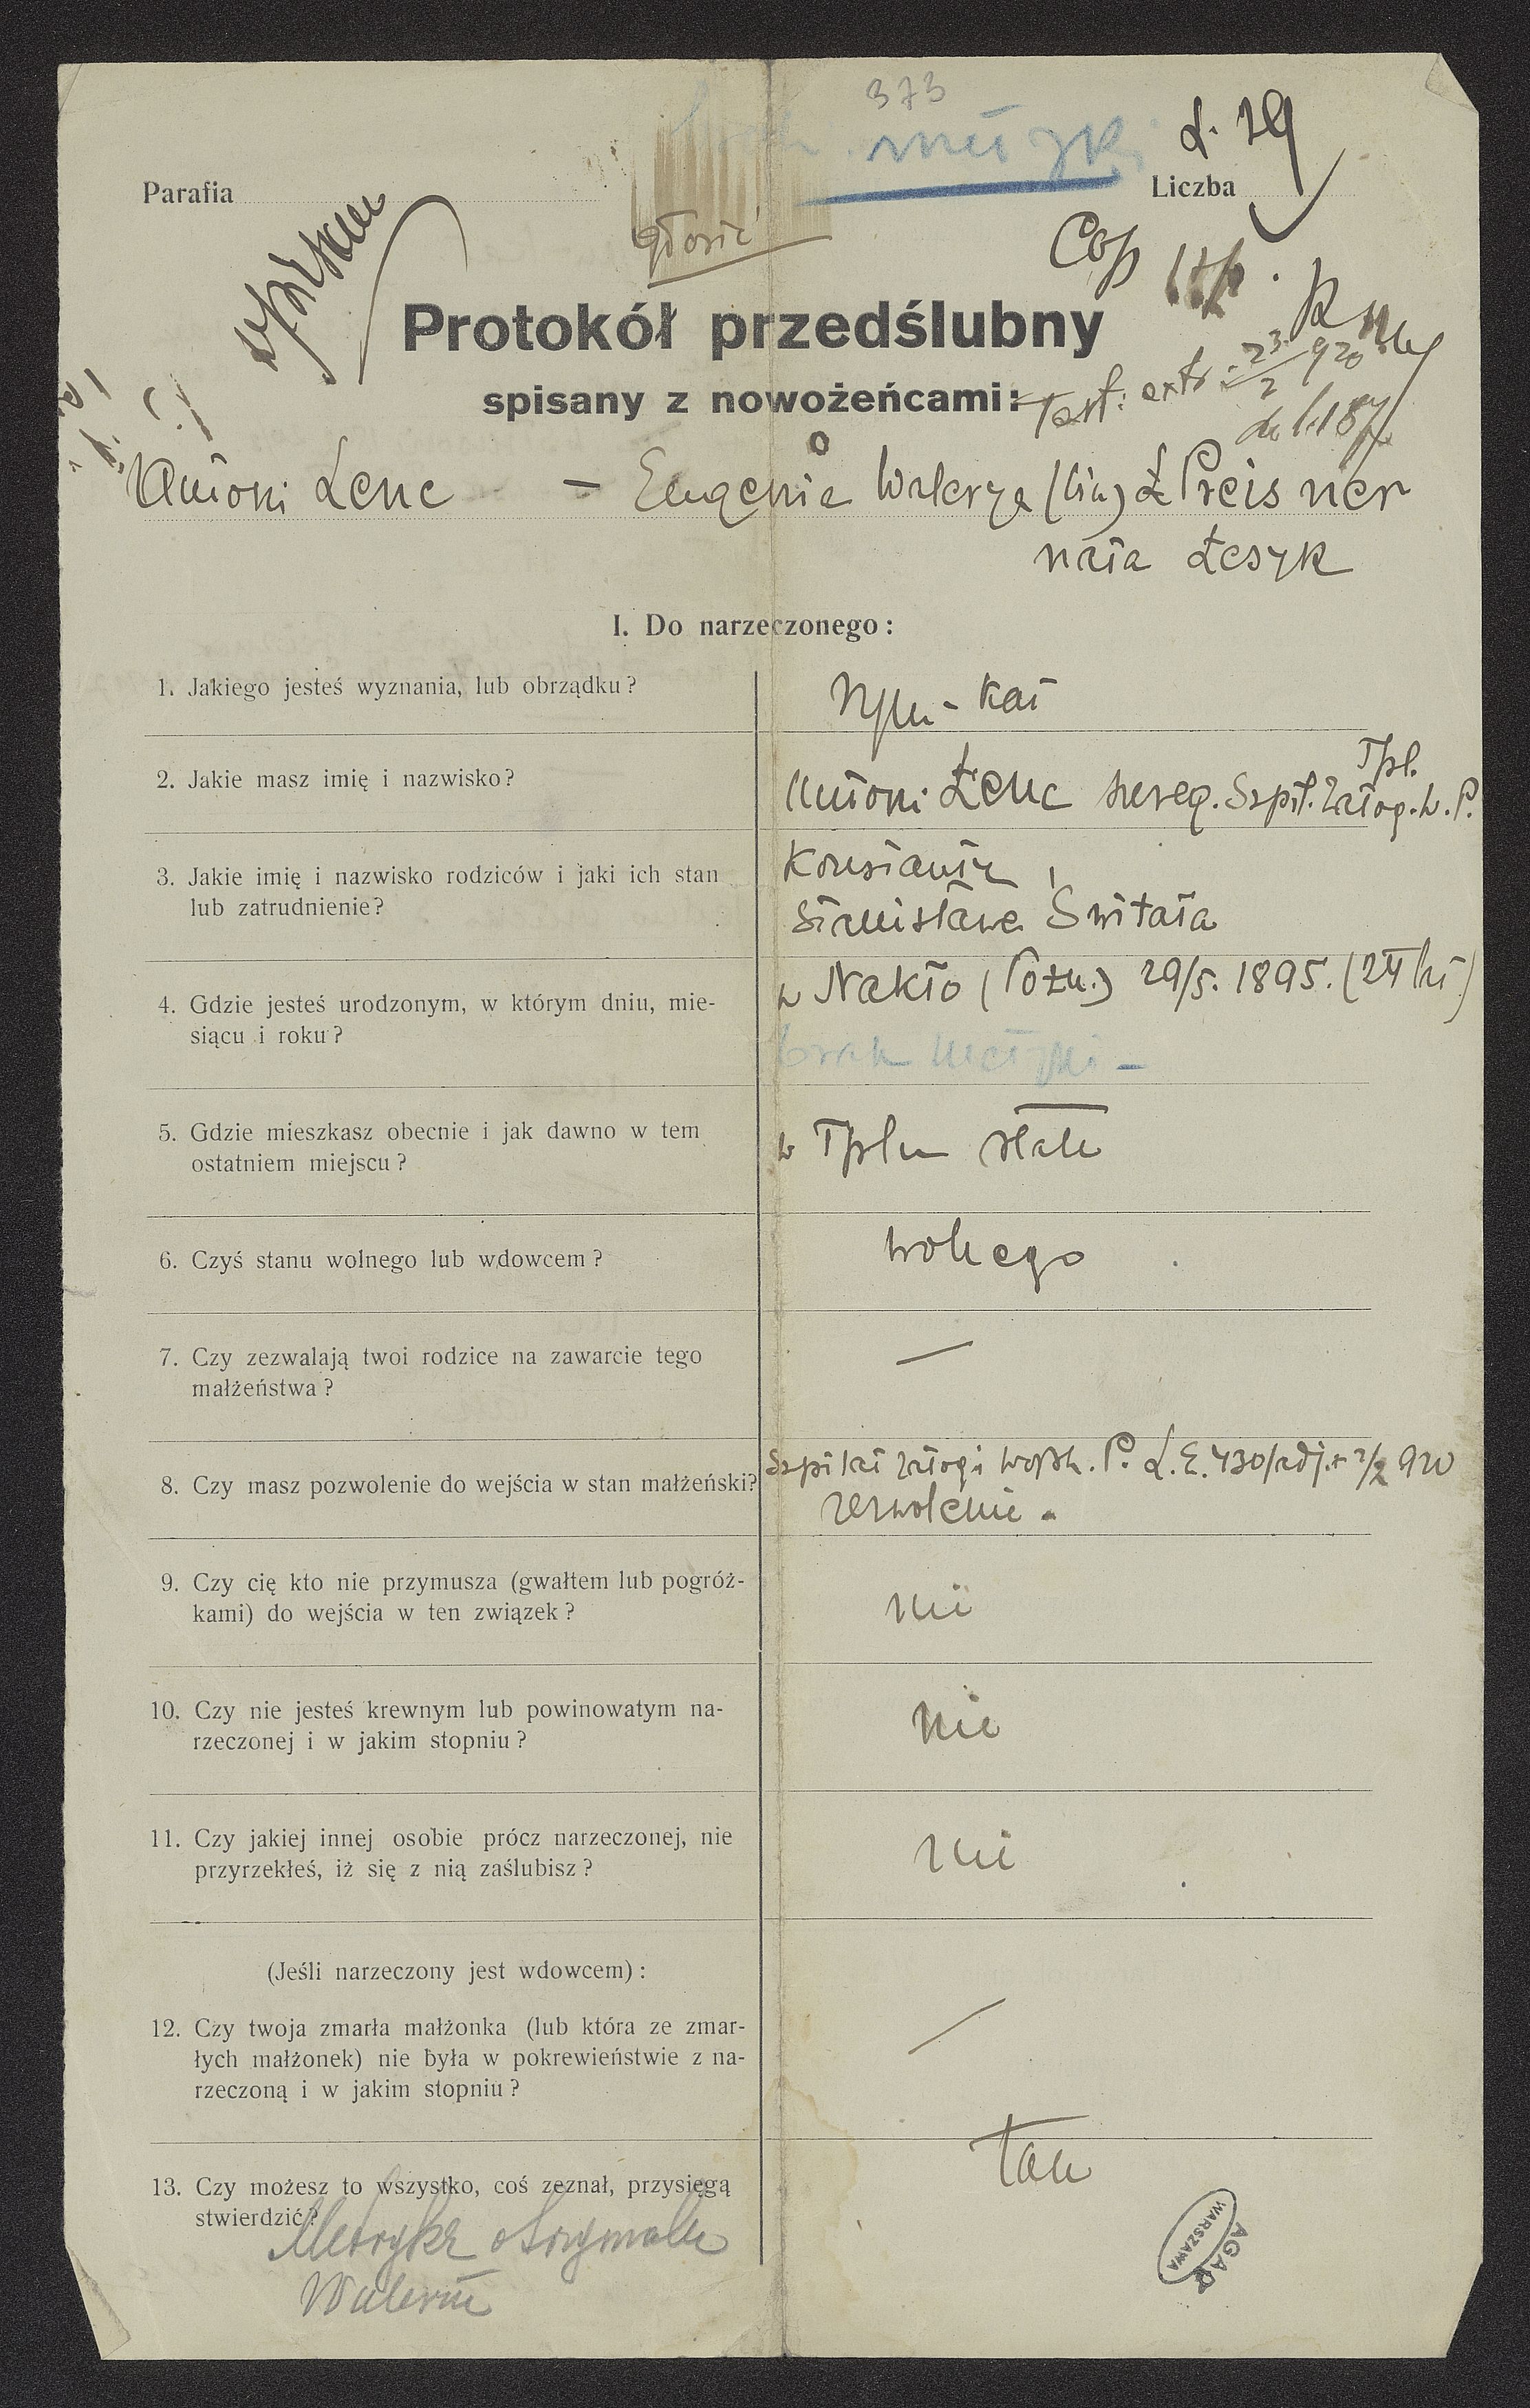 373
L. 29
Parafia
Liczba
głosić
Cop
Protokół przedślubny
spisany z nowożeńcami:
Test: extr: 23/2 920
Antoni Łenc – Eugenia Walerya (bin) Preisner
nata Łesyk
I. Do narzeczonego:
1. Jakiego jesteś wyznania, lub obrządku?
Rzm-kat
2. Jakie masz imię i nazwisko?
Tpl.
Antoni Łenc szereg. Szpit. Załog. W. P.
3. Jakie imię i nazwisko rodziców i jaki ich stan
lub zatrudnienie?
Konstanty
Stanisława Świtała
4. Gdzie jesteś urodzonym, w którym dniu, mie-
siącu i roku?
w Nakło (Pozn.) 29/5. 1895. (24 lat)
brak metryki –
5. Gdzie mieszkasz obecnie i jak dawno w tem
ostatniem miejscu?
w Tplu stale
6. Czyś stanu wolnego lub wdowcem?
wolnego
7. Czy zezwalają twoi rodzice na zawarcie tego
małżeństwa?
—
8. Czy masz pozwolenie do wejścia w stan małżeński?
Szpital załogi wojsk. P. L. E. 430/adj. 920
zezwolenie.
9. Czy cię kto nie przymusza (gwałtem lub pogróż-
kami) do wejścia w ten związek?
nie
10. Czy nie jesteś krewnym lub powinowatym na-
rzeczonej i w jakim stopniu?
nie
11. Czy jakiej innej osobie prócz narzeczonej, nie
przyrzekłeś, iż się z nią zaślubisz?
nie
(Jeśli narzeczony jest wdowcem):
12. Czy twoja zmarła małżonka (lub która ze zmar-
łych małżonek) nie była w pokrewieństwie z na-
rzeczoną i w jakim stopniu?
—
13. Czy możesz to wszystko, coś zeznał, przysięgą
stwierdzić?
tak
Metrykę otrzymała
AGAD
WARSZAWA